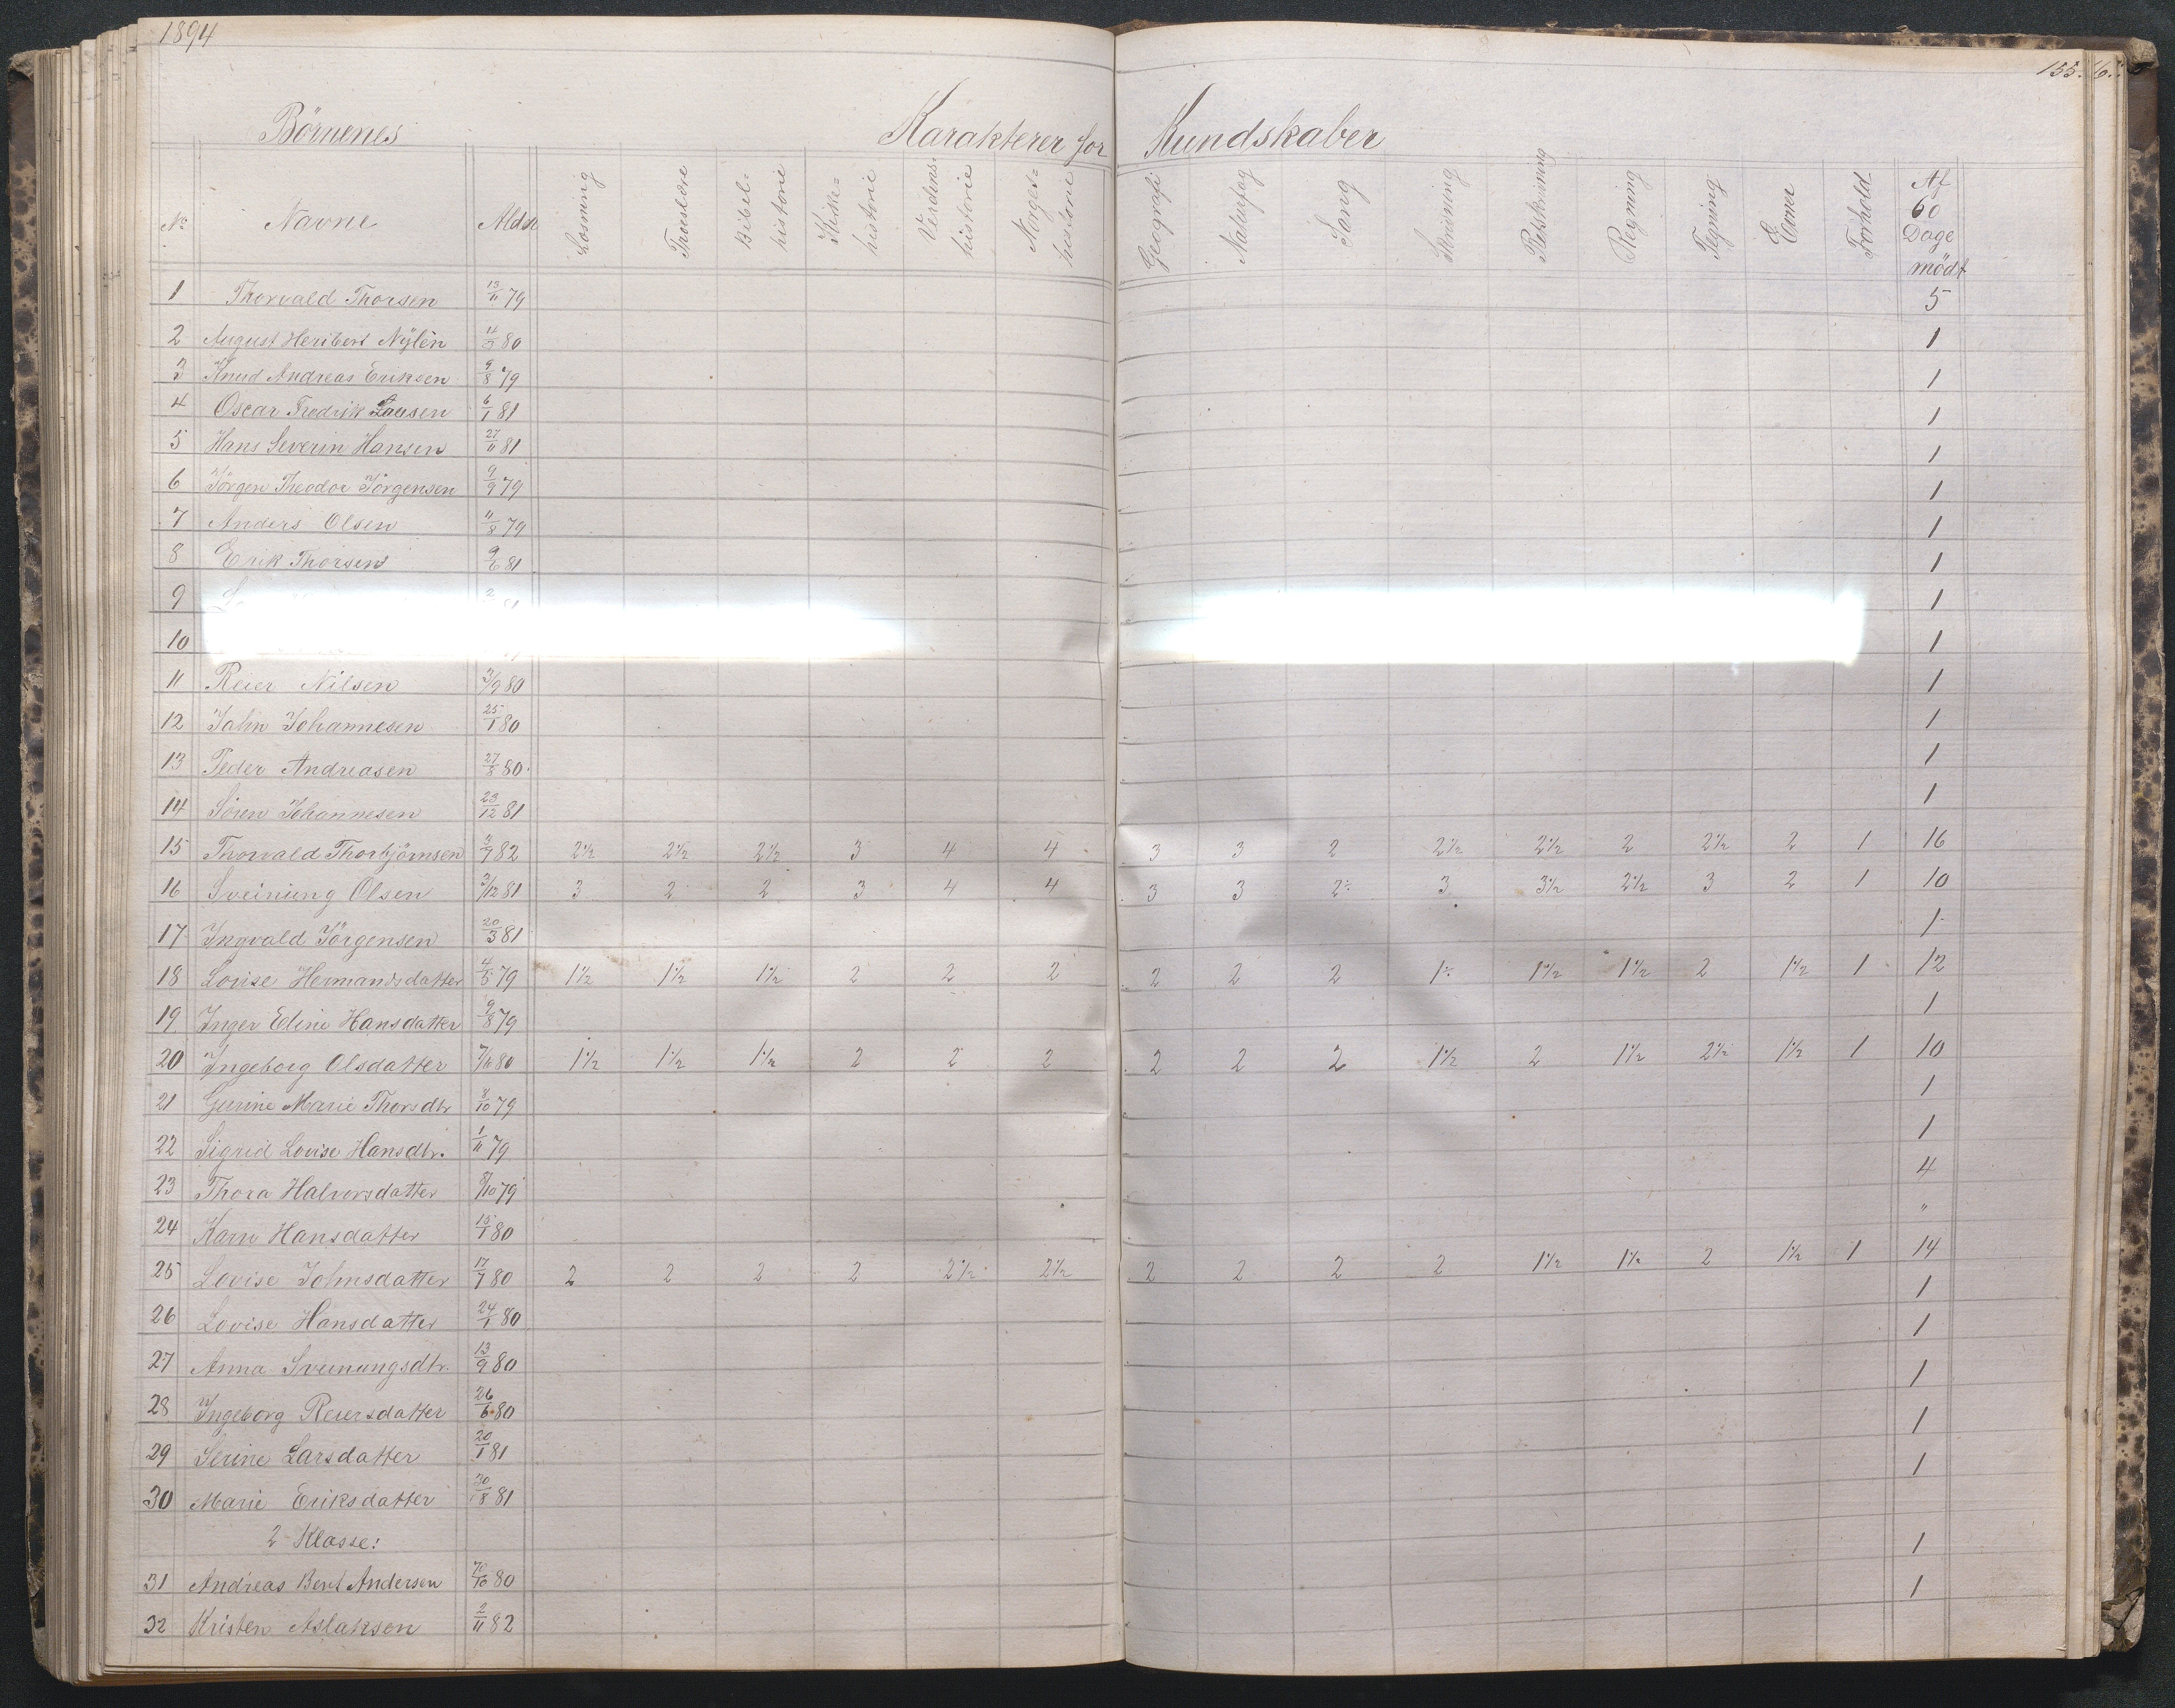 1894
155. 6.
Börnenes Karakterer for Kundskaber
No Navne Alder Læsning Troeslære Bibel=historie Kirke=historie Verdens-historie Norges=historie Geografi Naturfag Sang Skrivning Retskrivning Regning Tegning Evner Forhold Af 60 Dage mödt
1 Thorvald Thorsen 13/11 79 5
2 August Heribert Nylén 80 1
3 Knud Andreas Eriksen 9/8 79 1
4 Oscar Fredrik 6/1 81 1
5 Hans Severin Hansen 27/11 81 1
6 Jörgen Theodor Jörgensen 9/9 79 1
7 Anders Olsen 11/8 79 1
8 Erik Thorsen 9/6 81 1
9 1
10 1
11 Reier Nilsen 3/9 80 1
12 John Johannesen 25/1 80 1
13 Peder Andreasen 27/8 80 1
14 Sören Johannesen 23/12 81 1
15 Thorvald Thorbjörnsen 82 2½ 2½ 2½ 3 4 4 3 3 2 2½ 2½ 2 2½ 2 1 16
16 Sveinung Olsen 3/12 81 3 2 2 3 4 4 3 3 2÷ 3 3½ 2½ 3 2 1 10
17 Ingvald Jörgensen 20/3 81 1
18 Lovise Hermandsdatter 4/5 79 1½ 1½ 1½ 2 2 2 2 2 2 1÷ 1½ 1½ 2 1½ 1 12
19 Inger Eline Hansdatter 9/8 79 1
20 Ingeborg Olsdatter 80 1½ 1½ 1½ 2 2 2 2 2 2 1½ 2 1½ 2½ 1½ 1 10
21 Gurine Marie Thorsdtr 8/10 79 1
22 Sigrid Lovise Hansdtr. 1/11 79 1
23 Thora Halvorsdatter 8/10 79 4
24 Karn Hansdatter 15/1 80 "
25 Lovise Johnsdatter 17/7 80 2 2 2 2 2½ 2½ 2 2 2 2 1½ 1½ 2 1½ 1 14
26 Lovise Hansdatter 24/1 80 1
27 Anna Sveinungsdtr. 13/9 80 1
28 Ingeborg Reiersdatter 26/6 80 1
29 Serine Larsdatter 20/1 81 1
30 Marie Eriksdatter 30/8 81 1
2 Klasse:
31 Andreas Bent Andersen 80 1
32 Kristen Aslaksen 2/11 82 1